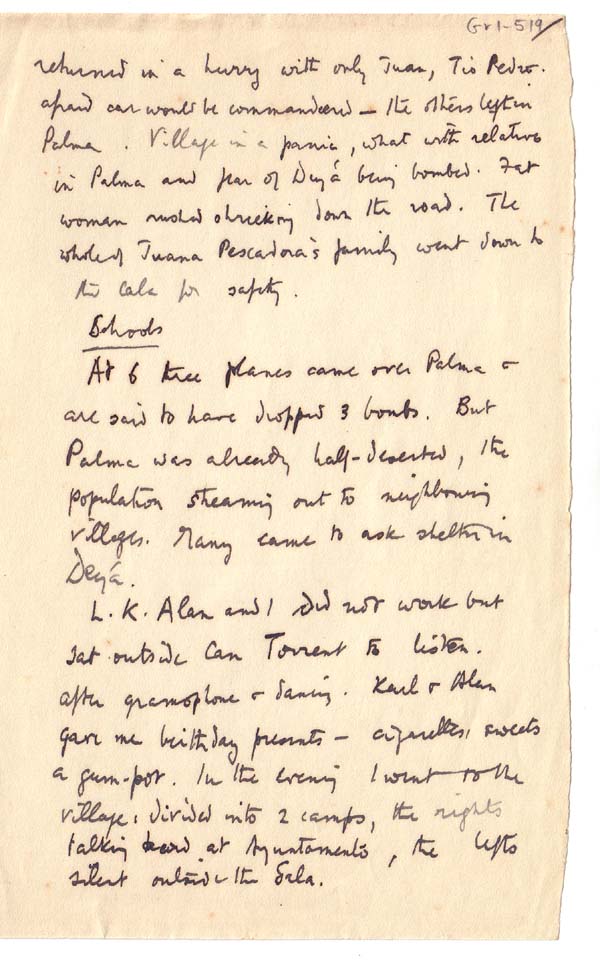 Gr1-519
returned in a hurry with only Juan, Tio Pedro.
afraid car would be commandeered – the others left in
Palma. Village in a panic, what with relatives
in Palma and fear of Deyá being bombed. Fat
woman rushed shrieking down the road. The
whole of Juana Pescadora's family went down to
the Cala for safety.
Schools
At 6 three planes came over Palma &
are said to have dropped 3 bombs. But
Palma was already half-deserted, the
population streaming out to neighbouring
villages. Many came to ask shelter in
Deyá.
L. K. Alan and I did not work but
sat outside Can Torrent to listen.
after gramophone & dancing. Karl & Alan
gave me birthday presents – cigarettes, sweets
a gum-pot. In the evening I went to the
village: divided into 2 camps, the rights
talking at Ayuntamento, the lefts
silent outside the Sala.